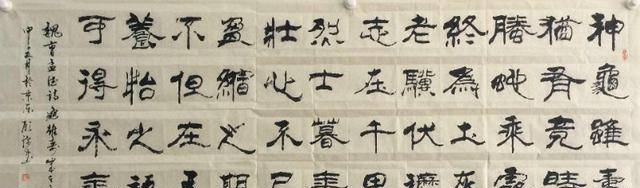 神龜雖壽
猶有竟時
騰虵乘霧
終為土灰
老驥伏櫪
志在千里
烈士暮年
壯心不已
盈縮之期
不但在天
養怡之福
可得永年
魏曹孟德詩龜雖壽
甲午五月於京東